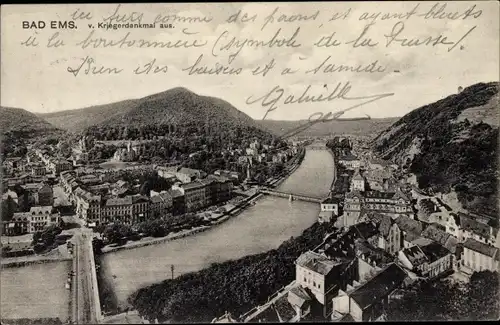 BAD EMS. v. Kriegerdenkmal aus.
Ici comme des paons et ayant bleuets
à la boutonnière (symbole de la Prusse)
Bien des baisers et à samedi.
Gabrielle